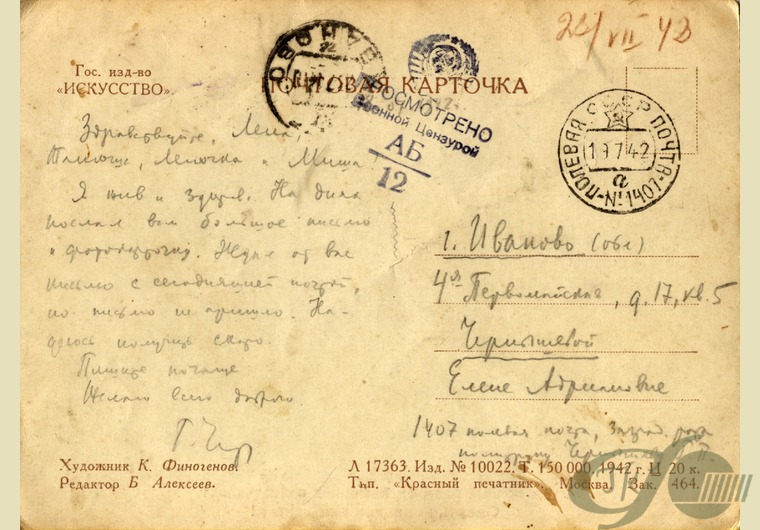 24/VII 42
Гос. изд-во
«ИСКУССТВО».
ПОЧТОВАЯ КАРТОЧКА
ИВАНОВО
ПРОСМОТРЕНО
Военной Цензурой
АБ
12
СССР
ПОЛЕВАЯ ПОЧТА-№1407
19 7 42
а
Здравствуйте, Лена,
Леночка и Миша
Я жив и здоров. На днях
послал вам большое письмо
и фотокарточку. Ждал от вас
письмо с сегодняшней почтой,
но письмо не пришло. На-
деюсь получить скоро.
Пишите почаще
Желаю всего доброго
Г. Чер
г. Иваново (обл)
4я Первомайская, д. 17, кв. 5
Чернышевой
Елене Адриановне
1407 полевая почта, заград. рота
Художник К. Финогенов.
Редактор Б Алексеев.
Л 17363. Изд. № 10022. Т. 150 000. 1942 г. Ц 20 к.
Тип. «Красный печатник». Москва. Зак. 464.